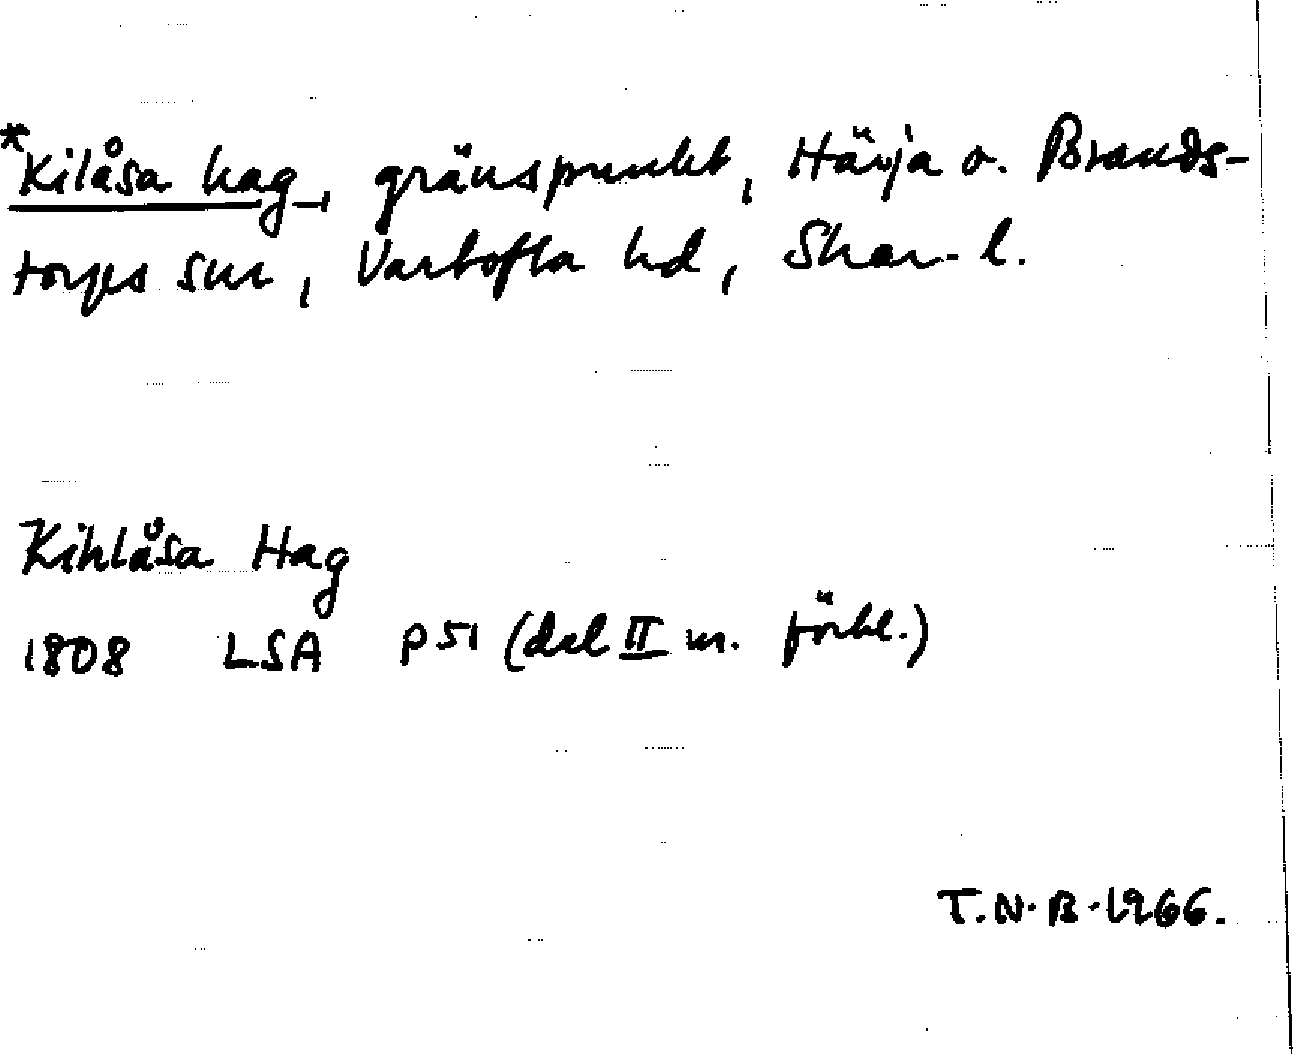 *Kilåsa hag, gränspunkt, Härja o. Brands-
torps snr, Vartofta hd, Skar. l.
Kihlåsa Hag
1808 LSA P51 (del II m. förkl.)
T.N.B. 1966.